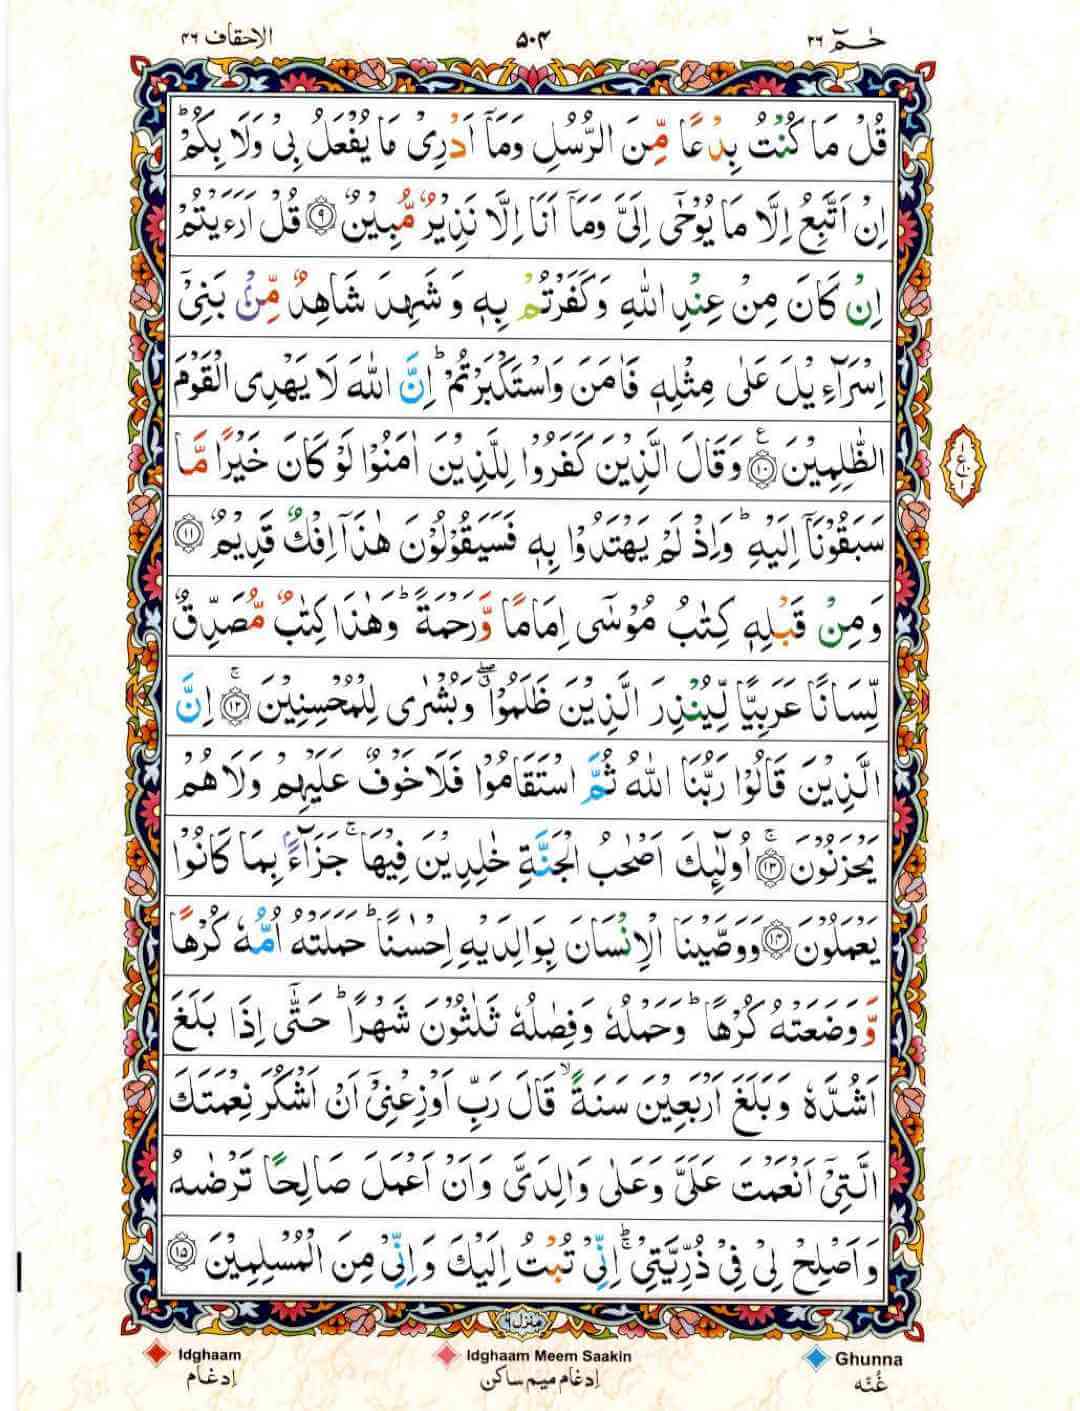 حٰمٓ ۲۶ ۵۰۴ الاحقاف ۴۶
قُلْ مَا كُنْتُ بِدْعًا مِّنَ الرُّسُلِ وَمَاۤ اَدْرِیْ مَا یُفْعَلُ بِیْ وَلَا بِكُمْ ؕ
اِنْ اَتَّبِعُ اِلَّا مَا یُوْحٰۤی اِلَیَّ وَمَاۤ اَنَا اِلَّا نَذِیْرٌ مُّبِیْنٌ ۟۹ قُلْ اَرَءَیْتُمْ
اِنْ كَانَ مِنْ عِنْدِ اللّٰهِ وَكَفَرْتُمْ بِهٖ وَشَهِدَ شَاهِدٌ مِّنْۢ بَنِیْۤ
اِسْرَآءِیْلَ عَلٰی مِثْلِهٖ فَاٰمَنَ وَاسْتَكْبَرْتُمْ ؕ اِنَّ اللّٰهَ لَا یَهْدِی الْقَوْمَ
الظّٰلِمِیْنَ ۟۱۰ ع وَقَالَ الَّذِیْنَ كَفَرُوْا لِلَّذِیْنَ اٰمَنُوْا لَوْ كَانَ خَیْرًا مَّا
سَبَقُوْنَاۤ اِلَیْهِ ؕ وَاِذْ لَمْ یَهْتَدُوْا بِهٖ فَسَیَقُوْلُوْنَ هٰذَاۤ اِفْكٌ قَدِیْمٌ ۟۱۱
وَمِنْ قَبْلِهٖ كِتٰبُ مُوْسٰۤی اِمَامًا وَّرَحْمَةً ؕ وَهٰذَا كِتٰبٌ مُّصَدِّقٌ
لِّسَانًا عَرَبِیًّا لِّیُنْذِرَ الَّذِیْنَ ظَلَمُوْا ۖۗ وَبُشْرٰی لِلْمُحْسِنِیْنَ ۟ۚ۱۲ اِنَّ
الَّذِیْنَ قَالُوْا رَبُّنَا اللّٰهُ ثُمَّ اسْتَقَامُوْا فَلَا خَوْفٌ عَلَیْهِمْ وَلَا هُمْ
یَحْزَنُوْنَ ۟ۚ۱۳ اُولٰٓئِكَ اَصْحٰبُ الْجَنَّةِ خٰلِدِیْنَ فِیْهَا ۚ جَزَآءًۢ بِمَا كَانُوْا
یَعْمَلُوْنَ ۟۱۴ وَوَصَّیْنَا الْاِنْسَانَ بِوَالِدَیْهِ اِحْسٰنًا ؕ حَمَلَتْهُ اُمُّهٗ كُرْهًا
وَّوَضَعَتْهُ كُرْهًا ؕ وَحَمْلُهٗ وَفِصٰلُهٗ ثَلٰثُوْنَ شَهْرًا ؕ حَتّٰۤی اِذَا بَلَغَ
اَشُدَّهٗ وَبَلَغَ اَرْبَعِیْنَ سَنَةً ۙ قَالَ رَبِّ اَوْزِعْنِیْۤ اَنْ اَشْكُرَ نِعْمَتَكَ
الَّتِیْۤ اَنْعَمْتَ عَلَیَّ وَعَلٰی وَالِدَیَّ وَاَنْ اَعْمَلَ صَالِحًا تَرْضٰىهُ
وَاَصْلِحْ لِیْ فِیْ ذُرِّیَّتِیْ ؕۚ اِنِّیْ تُبْتُ اِلَیْكَ وَاِنِّیْ مِنَ الْمُسْلِمِیْنَ ۟۱۵
منزل ۶
Idghaam Idghaam Meem Saakin Ghunna
اِدغام اِدغام میم ساکن غُنّه